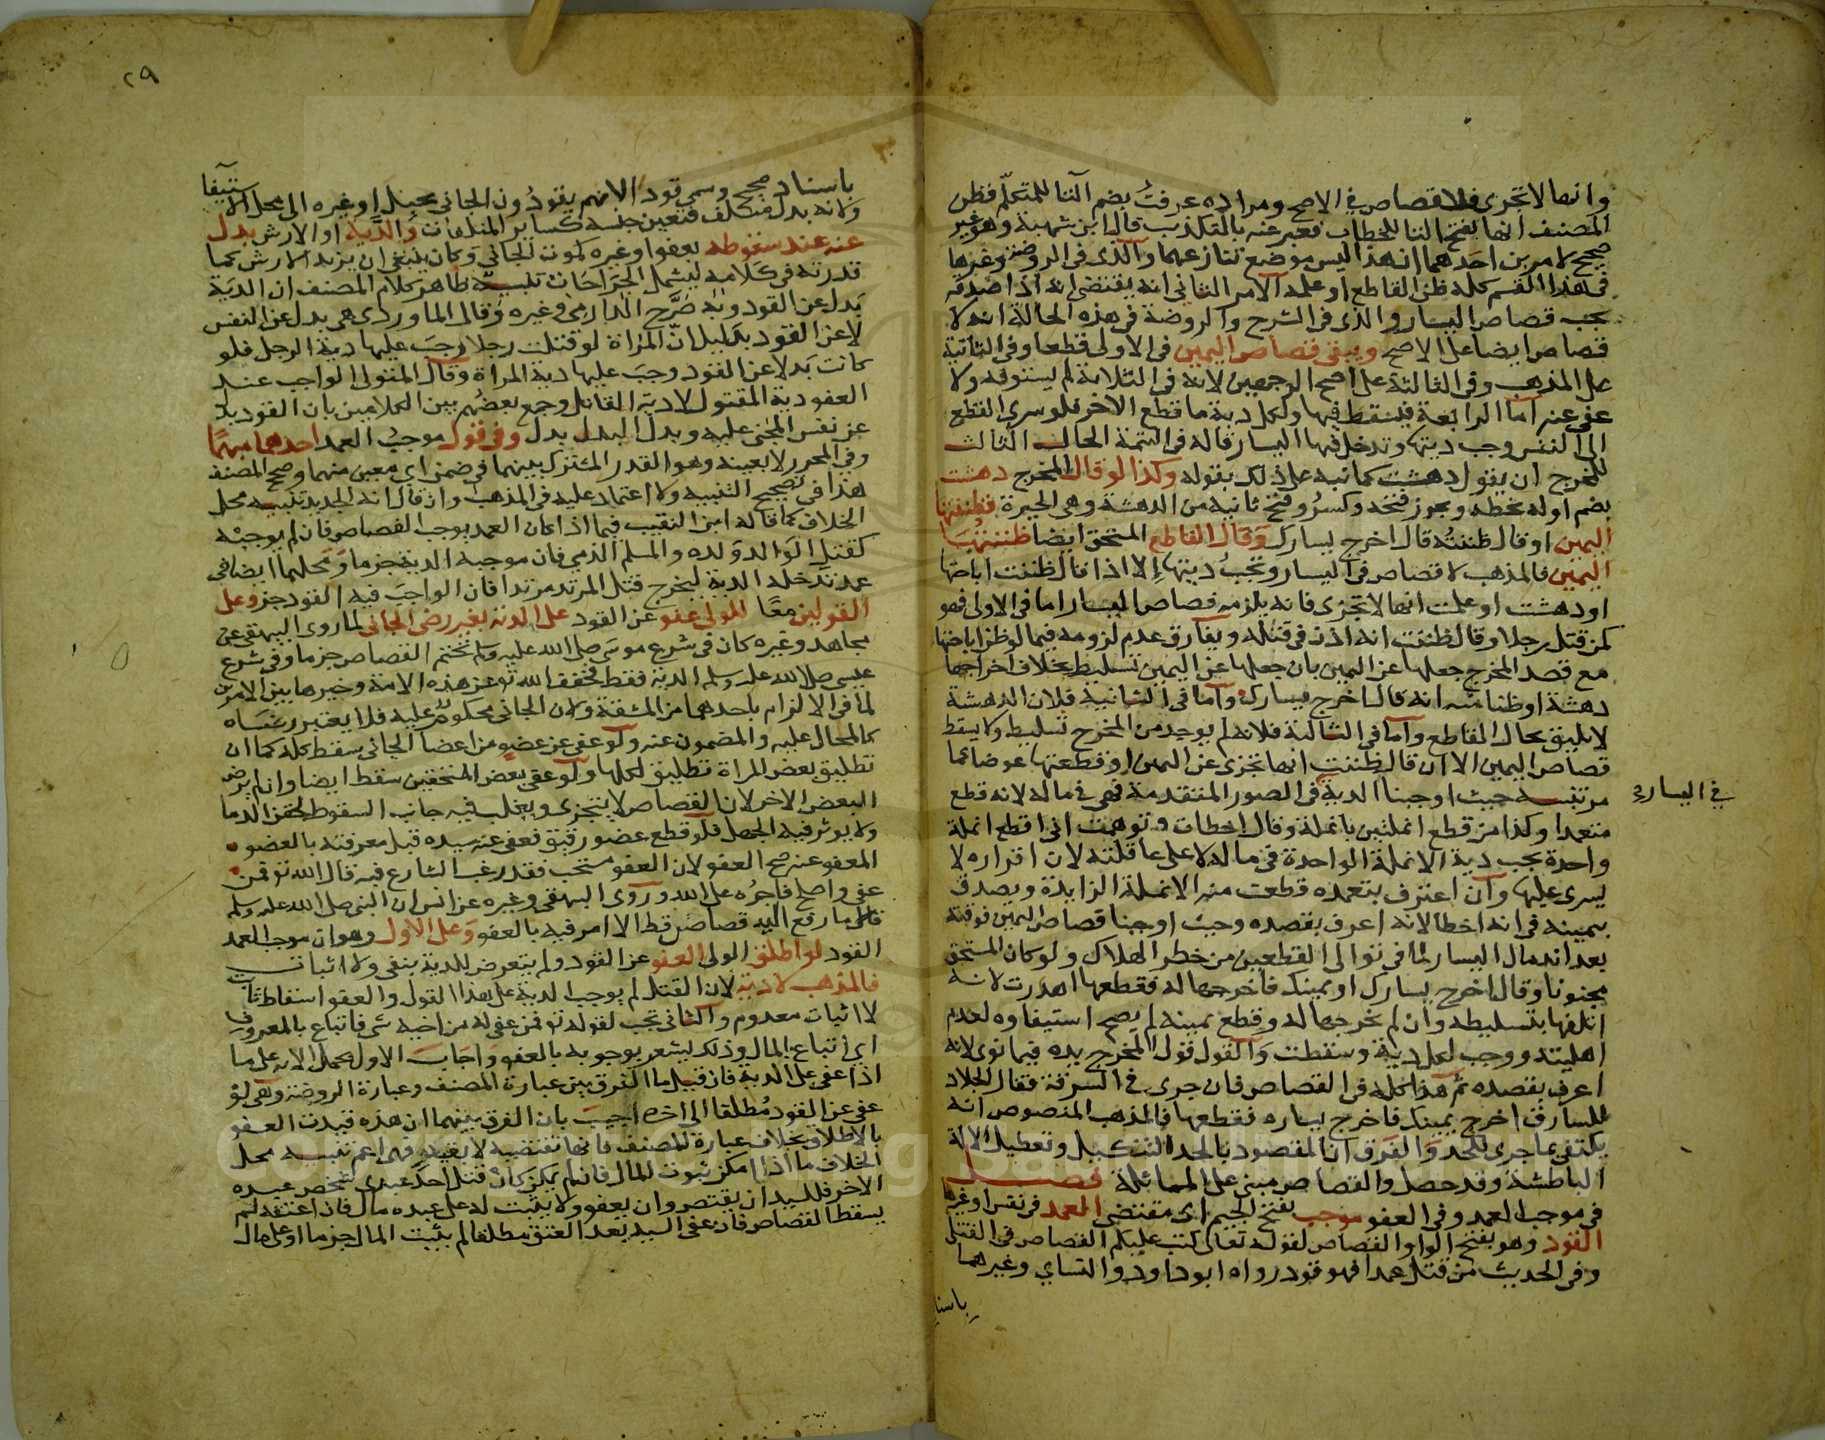 وانها لا تجزى فلا قصاص في الاصح ومراده عرفت بضم التا للمتكلم فظن
المصنف انها بفتح التا للخطاب فعبر عنه بالتكذيب قال ابن شهبة وهو غير
صحيح لامرين احدهما ان هذا ليس موضع تنازعهما والذى في الروضة وغيرها
في هذا القسم كله ظن القاطع او علمه الامر الثانى انه يقتضى انه اذا صدقه
يجب قصاص اليسار والذى في الشرح والروضة في هذه الحالة انه لا
قصاص ايضا على الاصح ويبقى قصاص اليمين في الاولى قطعا وفي الثانية
على المذهب وفي الثالثة على اصح الوجهين لانه في الثلاثة لم يستوفه ولا
عفى عنه اما الرابعة فيسقط فيها ولكل دية ما قطع الاخر فلو سرى القطع
الى النفس وجب ديتها وتدخل فيها اليسار قاله في التتمة الحال الثالث
للمخرج ان يقول دهشت كما نبه على ذلك بقوله وكذا لو قال المخرج دهشت
بضم اوله بخطه ويجوز فتحه وكسر وفتح ثانيه من الدهشة وهي الحيرة فظننتها
اليمين او قال ظننته قال اخرج يسارك وقال القاطع المستحق ايضا ظننتها
اليمين فالمذهب لا قصاص في اليسار وتجب ديتها الا اذا قال ظننت اباحتها
او دهشت او علمت انها لا تجزى فانه يلزمه قصاص اليسار اما في الاولى فهو
كمن قتل رجلا وقال ظننت انه اذن في قتله ويفارق عدم لزومه فيما لو ظن اباحتها
مع قصد المخرج جعلها عن اليمين بان جعلها عن اليمين تسليط بخلاف اخراجها
دهشة او ظنا منه انه قال اخرج يسارك واما في الثانية فلان الدهشة
لا تليق بحال القاطع واما في الثالثة فلانه لم يوجد من المخرج تسليط ولا يسقط
قصاص اليمين الا ان قال ظننت انها تجزى عن اليمين او قطعتها عوضا عما
مر تنبيه حيث اوجبنا الدية في الصور المتقدمة فهي في ماله لانه قطع
في اليسار
متعمدا وكذا من قطع انملتين بانملة وقال اخطات وتوهمت انى اقطع انملة
واحدة يجب دية الانملة الواحدة في ماله لا على عاقلته لان اقراره لا
يسرى عليها وان اعترف بتعمده قطعت منه الانملة الزايدة ويصدق
بيمينه في انه اخطا لانه اعرف بقصده وحيث اوجبنا قصاص اليمين فوقته
بعد اندمال اليسار لما في توالى القطعين من خطر الهلاك ولو كان المستحق
مجنونا وقال اخرج يسارك او يمينك فاخرجها له فقطعها اهدرت لانه
اتلفها بتسليطه وان لم يخرجها له وقطع يمينه لم يصح استيفاوه لعدم
اهليته ووجب لكل دية وسقطت والقول قول المخرج يده فيما نوى لانه
اعرف بقصده ثم هذا كله في القصاص فان جرى في السرقة فقال الجلاد
للسارق اخرج يمينك فاخرج يساره فقطعها فالمذهب المنصوص انه
يكتفى بما جرى للحد والفرق ان المقصود بالحد التنكيل وتعطيل الالة
الباطشة وقد حصل والقصاص مبنى على المماثلة فصل
في موجب العمد وفي العفو موجب بفتح الجيم اى مقتضى العمد في نفس او غيرها
القود وهو بفتح الواو القصاص لقوله تعالى كتب عليكم القصاص في القتلى
وفي الحديث من قتل عمدا فهو قود رواه ابو داود والنساي وغيرهما
باسناد
٢٩
باسناد صحيح وسمى قودا لانهم يقودون الجانى بحبل او غيره الى محل الاستيفا
ولانه بدل متلف فتعين جنسه كساير المتلفات والدية او الارش بدل
عنه عند سقوطه بعفو او غيره كموت الجانى وكان ينبغى ان يزيد الارش كما
قدرته في كلامه ليشمل الجراحات تنبيه ظاهر كلام المصنف ان الدية
بدل عن القود وبه صرح الدارمى وغيره وقال الماوردى هى بدل عن النفس
لا عن القود بدليل ان المراة لو قتلت رجلا وجب عليها دية الرجل فلو
كانت بدلا عن القود وجب عليها دية المراة وقال المتولى الواجب عند
العفو دية المقتول لا دية القاتل وجمع بعضهم بين الكلامين بان القود بدل
عن نفس المجنى عليه وبدل البدل بدل وفي قول موجب العمد احدهما مبهما
وفي المحرر لا بعينه وهو القدر المشترك بينهما في ضمن اى معين منهما وصحح المصنف
هذا في تصحيح التنبيه ولا اعتماد عليه في المذهب وان قال انه الجديد تنبيه محل
الخلاف كما قاله ابن النقيب فيما اذا كان العمد يوجب القصاص فان لم يوجبه
كقتل الوالد ولده والمسلم الذمى فان موجبه الدية جزما ومحلهما ايضا في
عمد تدخله الدية ليخرج قتل المرتد مرتدا فان الواجب فيه القود جزما وعلى
القولين معا للولى عفو عن القود على الدية بغير رضى الجانى لما روى البيهقى عن
مجاهد وغيره كان في شرع موسى صلى الله عليه وسلم تحتم القصاص جزما وفي شرع
عيسى صلى الله عليه وسلم الدية فقط فخفف الله تع عن هذه الامة وخيرها بين الامرين
لما في الالزام باحدهما من المشقة ولان الجانى محكوم عليه فلا يعتبر رضاه
كالمحال عليه والمضمون عنه ولو عفى عن عضو من اعضا الجانى سقط كله كما ان
تطليق بعض المراة تطليق لكلها ولو عفى بعض المستحقين سقط ايضا وان لم يرض
البعض الاخر لان القصاص لا يتجزى ويغلب فيه جانب السقوط لحقن الدما
ولا يوثر فيه الجهل فلو قطع عضو رقيق فعفى عنه سيده قبل معرفته بالعضو
المعفو عنه صح العفو لان العفو مستحب فقد رغب الشارع فيه قال الله تع فمن
عفى واصلح فاجره على الله وروى البيهقى وغيره عن انس ان النبى صلى الله عليه وسلم
قال ما رفع اليه قصاص قط الا امر فيه بالعفو وعلى الاول وهو ان موجب العمد
القود لو اطلق الولى العفو عن القود ولم يتعرض للدية بنفى ولا اثبات
فالمذهب لا دية لان القتل لم يوجب الدية على هذا القول والعفو اسقاط ثابت
لا اثبات معدوم والثانى تجب لقوله تع فمن عفى له من اخيه شى فاتباع بالمعروف
اى اتباع بالمال وذلك يشعر بوجوبه بالعفو واجاب الاول بحمل الاية على ما
اذا عفى على الدية فان قيل ما الفرق بين عبارة المصنف وعبارة الروضة وهى لو
عفى عن القود مطلقا الى اخره اجيب بان الفرق بينهما ان هذه قيدت العفو
بالاطلاق بخلاف عبارة المصنف فانها تقتضيه لا بقيد فهى اعم تنبيه محل
الخلاف ما اذا امكن ثبوت المال فان لم يمكن كان قتل احد عبدى شخص عبده
الاخر فللسيد ان يقتص وان يعفو ولا يثبت له على عبده مال فان اعتقه لم
يسقط القصاص فان عفى السيد بعد العتق مطلقا لم يثبت المال جزما او على مال